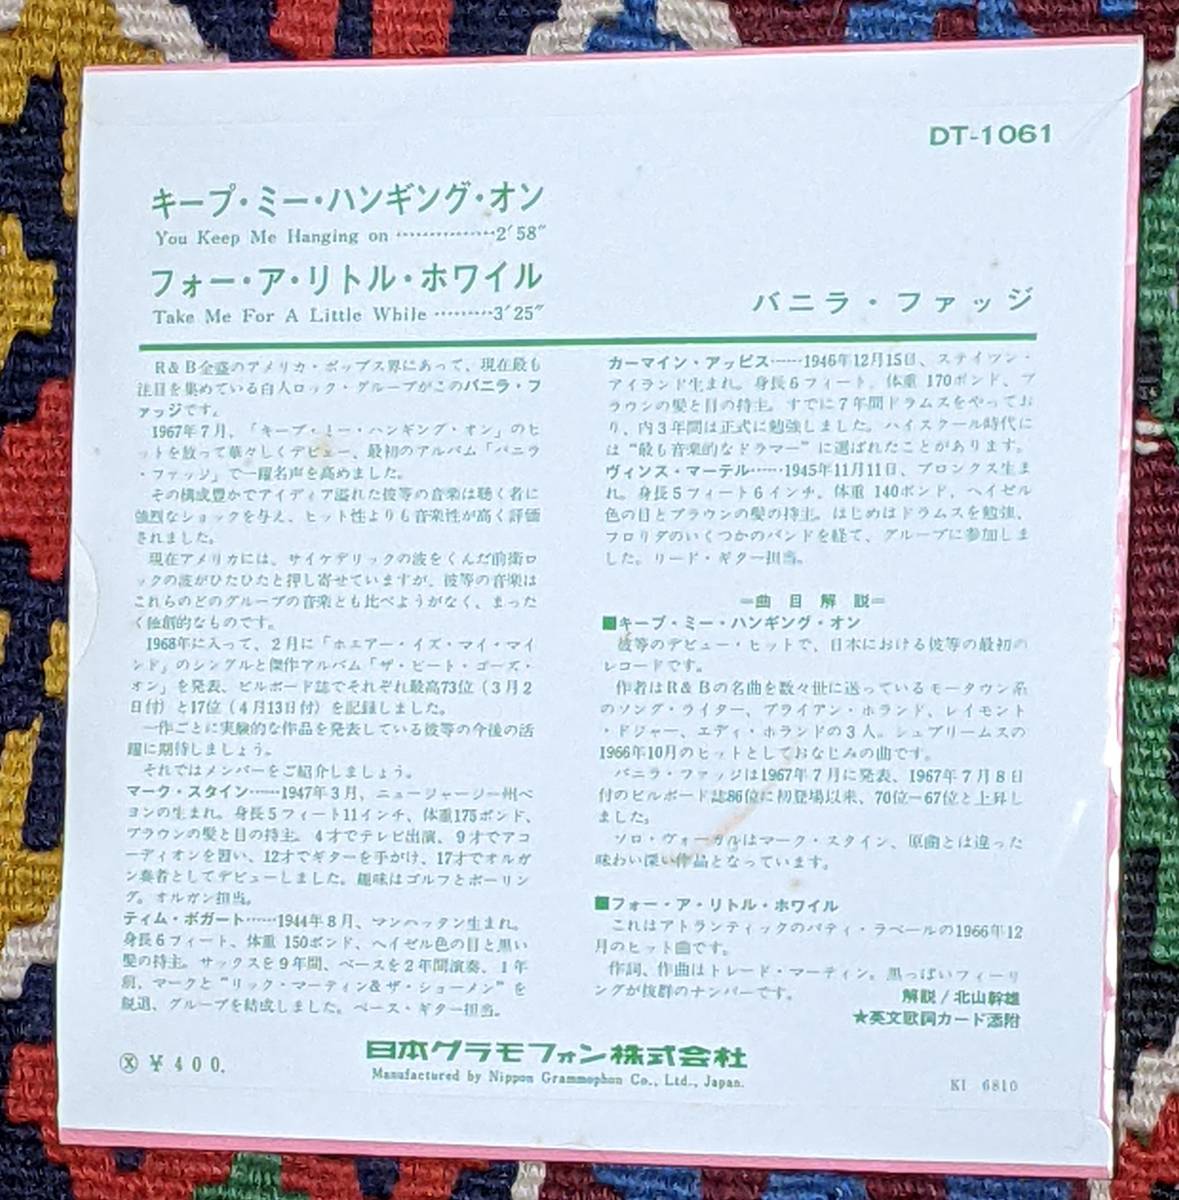 DT-1061
キープ・ミー・ハンギング・オン
You Keep Me Hanging on ……………2′58″
フォー・ア・リトル・ホワイル
Take Me For A Little While ………3′25″
バニラ・ファッジ
R&B全盛のアメリカ・ポップス界にあって、現在最も
注目を集めている白人ロック・グループがこのバニラ・フ
ァッジです。
1967年7月、「キープ・ミー・ハンギング・オン」のヒ
ットを放って華々しくデビュー、最初のアルバム「バニラ
・ファッジ」で一躍名声を高めました。
その構成豊かでアイディア溢れた彼等の音楽は聴く者に
強烈なショックを与え、ヒット性よりも音楽性が高く評価
されました。
現在アメリカには、サイケデリックの波をくんだ前衛ロ
ックの波がひたひたと押し寄せていますが、彼等の音楽は
これらのどのグループの音楽とも比べようがなく、まった
く独創的なものです。
1968年に入って、2月に「ホエアー・イズ・マイ・マイ
ンド」のシングルと傑作アルバム「ザ・ビート・ゴーズ・
オン」を発表、ビルボード誌でそれぞれ最高73位（3月2
日付）と17位（4月13日付）を記録しました。
一作ごとに実験的な作品を発表している彼等の今後の活
躍に期待しましょう。
それではメンバーをご紹介しましょう。
マーク・スタイン……1947年3月、ニュージャージー州ベ
ヨンの生まれ。身長5フィート11インチ、体重175ポンド、
ブラウンの髪と目の持主。4才でテレビ出演、9才でアコ
ーディオンを習い、12才でギターを手がけ、17才でオルガ
ン奏者としてデビューしました。趣味はゴルフとボーリン
グ。オルガン担当。
ティム・ボガート……1944年8月、マンハッタン生まれ。
身長6フィート、体重 150ポンド、ヘイゼル色の目と黒い
髪の持主。サックスを9年間、ベースを2年間演奏、1年
前、マークと“リック・マーティン&ザ・ショーメン”を
脱退、グループを結成しました。ベース・ギター担当。
カーマイン・アッピス……1946年12月15日、ステイツン・
アイランド生まれ。身長6フィート、体重 170ポンド、ブ
ラウンの髪と目の持主。すでに7年間ドラムスをやってお
り、内3年間は正式に勉強しました。ハイスクール時代に
は“最も音楽的なドラマー”に選ばれたことがあります。
ヴィンス・マーテル……1945年11月11日、ブロンクス生ま
れ。身長5フィート6インチ、体重 140ポンド、ヘイゼル
色の目とブラウンの髪の持主。はじめはドラムスを勉強、
フロリダのいくつかのバンドを経て、グループに参加しま
した。リード・ギター担当。
=曲目解説=
■キープ・ミー・ハンギング・オン
彼等のデビュー・ヒットで、日本における彼等の最初の
レコードです。
作者はR&Bの名曲を数々世に送っているモータウン系
のソング・ライター、ブライアン・ホランド、レイモント
・ドジャー、エディ・ホランドの3人。シュプリームスの
1966年10月のヒットとしておなじみの曲です。
バニラ・ファッジは1967年7月に発表、1967年7月8日
付のビルボード誌86位に初登場以来、70位―67位と上昇し
ました。
ソロ・ヴォーカルはマーク・スタイン、原曲とは違った
味わい深い作品となっています。
■フォー・ア・リトル・ホワイル
これはアトランティックのパティ・ラベールの1966年12
月のヒット曲です。
作詞、作曲はトレード・マーティン。黒っぽいフィーリ
ングが抜群のナンバーです。
解説/北山幹雄
★英文歌詞カード添附
Ⓧ ￥400.
日本グラモフォン株式会社
Manufactured by Nippon Grammophon Co., Ltd., Japan.
KI 6810